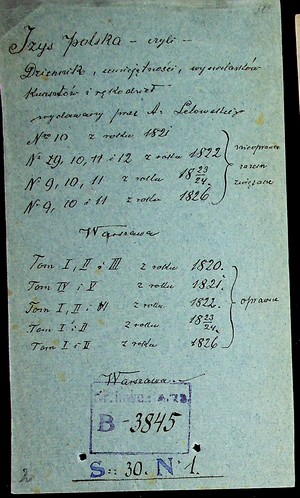 Izys polska — czyli —
Dziennik, umiejętności, wynalazków
kunsztów i rękodzieł
wydawany przez A. Lelowskiego
Nro 10 z roku 1821
№ 9, 10, 11 i 12 z roku 1822
№ 9, 10, 11 z roku 18 23/24.
№ 9, 10 i 11 z roku 1826
nieoprawne
razem
związane
Warszawa
Tom I, II i III z roku 1820.
Tom IV i V z roku 1821.
Tom I, II i III z roku 1822.
Tom I i II z roku 18 23/24.
Tom I i II z roku 1826
oprawne
Warszawa
B-3845
S: 30. N 1.
2